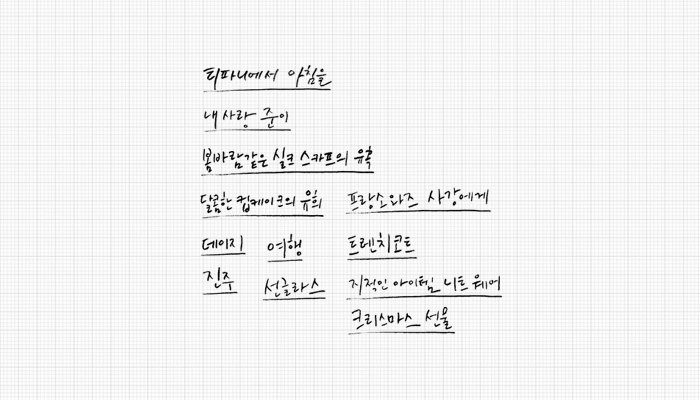 티파니에서 아침을
내 사랑 준이
봄바람같은 실크 스카프의 유혹
달콤한 컵케이크의 유희 프랑소와즈 사강에게
데이지 여행 트렌치코트
진주 선글라스 지적인 아이템 니트 웨어
크리스마스 선물